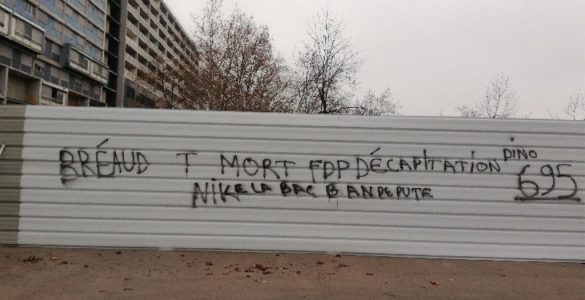 BRÉAUD T MORT FDP DÉCAPITATION DINO
NIKE LA BAC BANDEPUTE 695